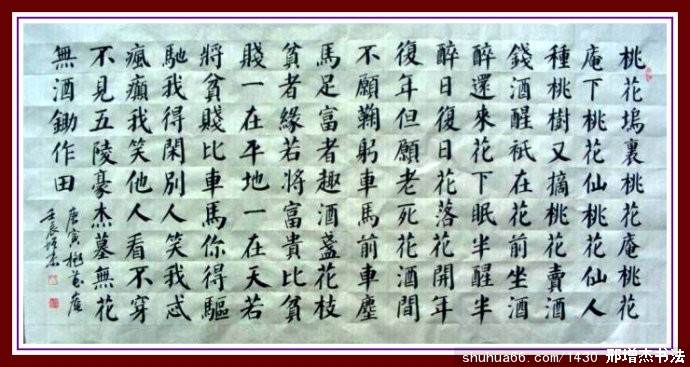 桃花塢裏桃花庵桃花
庵下桃花仙桃花仙人
種桃樹又摘桃花賣酒
錢酒醒祇在花前坐酒
醉還來花下眠半醒半
醉日復日花落花開年
復年但願老死花酒間
不願鞠躬車馬前車塵
馬足富者趣酒盞花枝
貧者緣若將富貴比貧
賤一在平地一在天若
將貧賤比車馬你得驅
馳我得閑別人笑我忒
瘋癲我笑他人看不穿
不見五陵豪杰墓無花
無酒鋤作田
唐寅桃花庵
壬辰增杰
shuhua66.com/1430 邢增杰书法